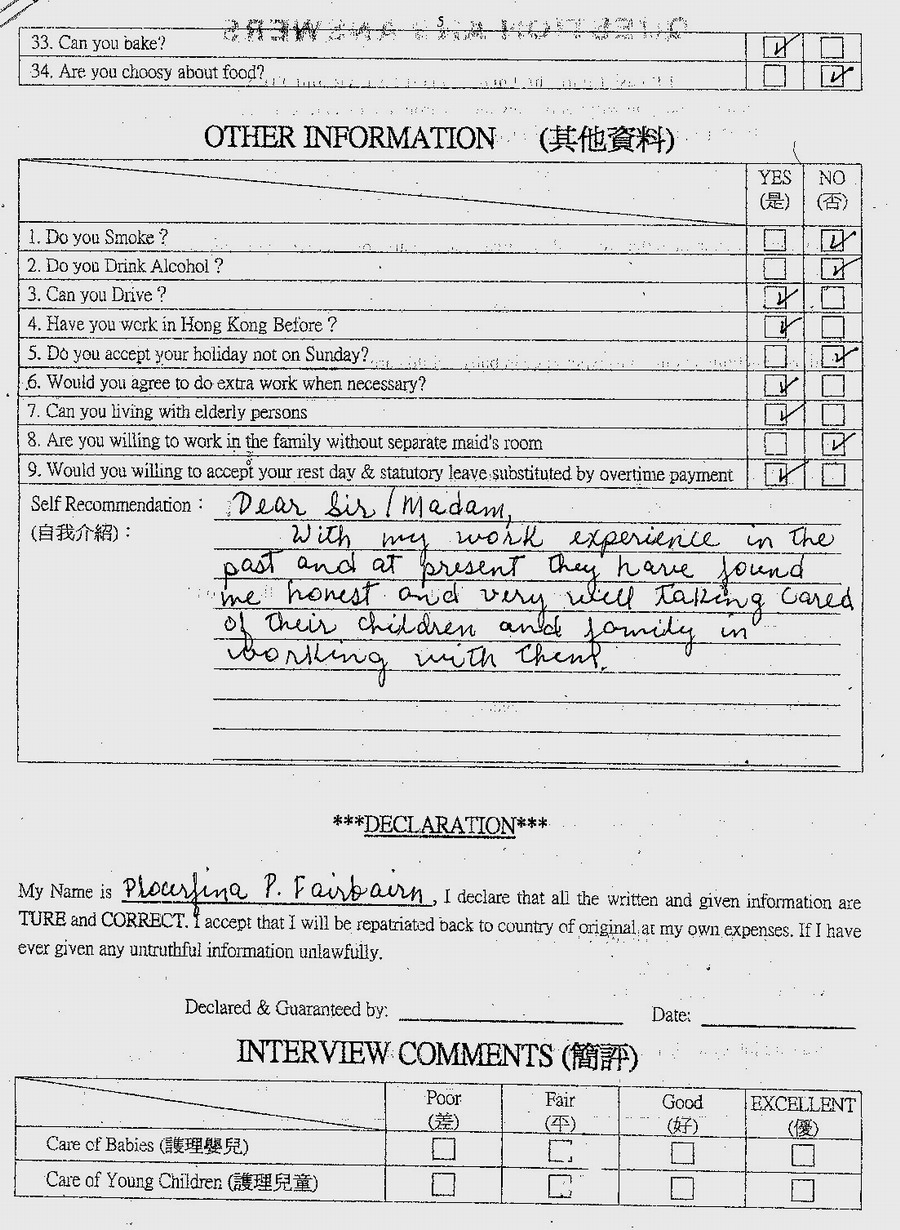 5
33. Can you bake?
34. Are you choosy about food?
OTHER INFORMATION (其他資料)
YES NO
(是) (否)
1. Do you Smoke ?
2. Do you Drink Alcohol ?
3. Can you Drive ?
4. Have you work in Hong Kong Before ?
5. Do you accept your holiday not on Sunday?
6. Would you agree to do extra work when necessary?
7. Can you living with elderly persons
8. Are you willing to work in the family without separate maid's room
9. Would you willing to accept your rest day & statutory leave substituted by overtime payment
Self Recommendation : Dear Sir / Madam,
(自我介紹) : With my work experience in the
past and at present they have found
me honest and very well taking cared
of their children and family in
working with them.
***DECLARATION***
My Name is P. Fairbairn, I declare that all the written and given information are
TURE and CORRECT. I accept that I will be repatriated back to country of original at my own expenses. If I have
ever given any untruthful information unlawfully.
Declared & Guaranteed by: Date:
INTERVIEW COMMENTS (簡評)
Poor Fair Good EXCELLENT
(差) (平) (好) (優)
Care of Babies (護理嬰兒)
Care of Young Children (護理兒童)